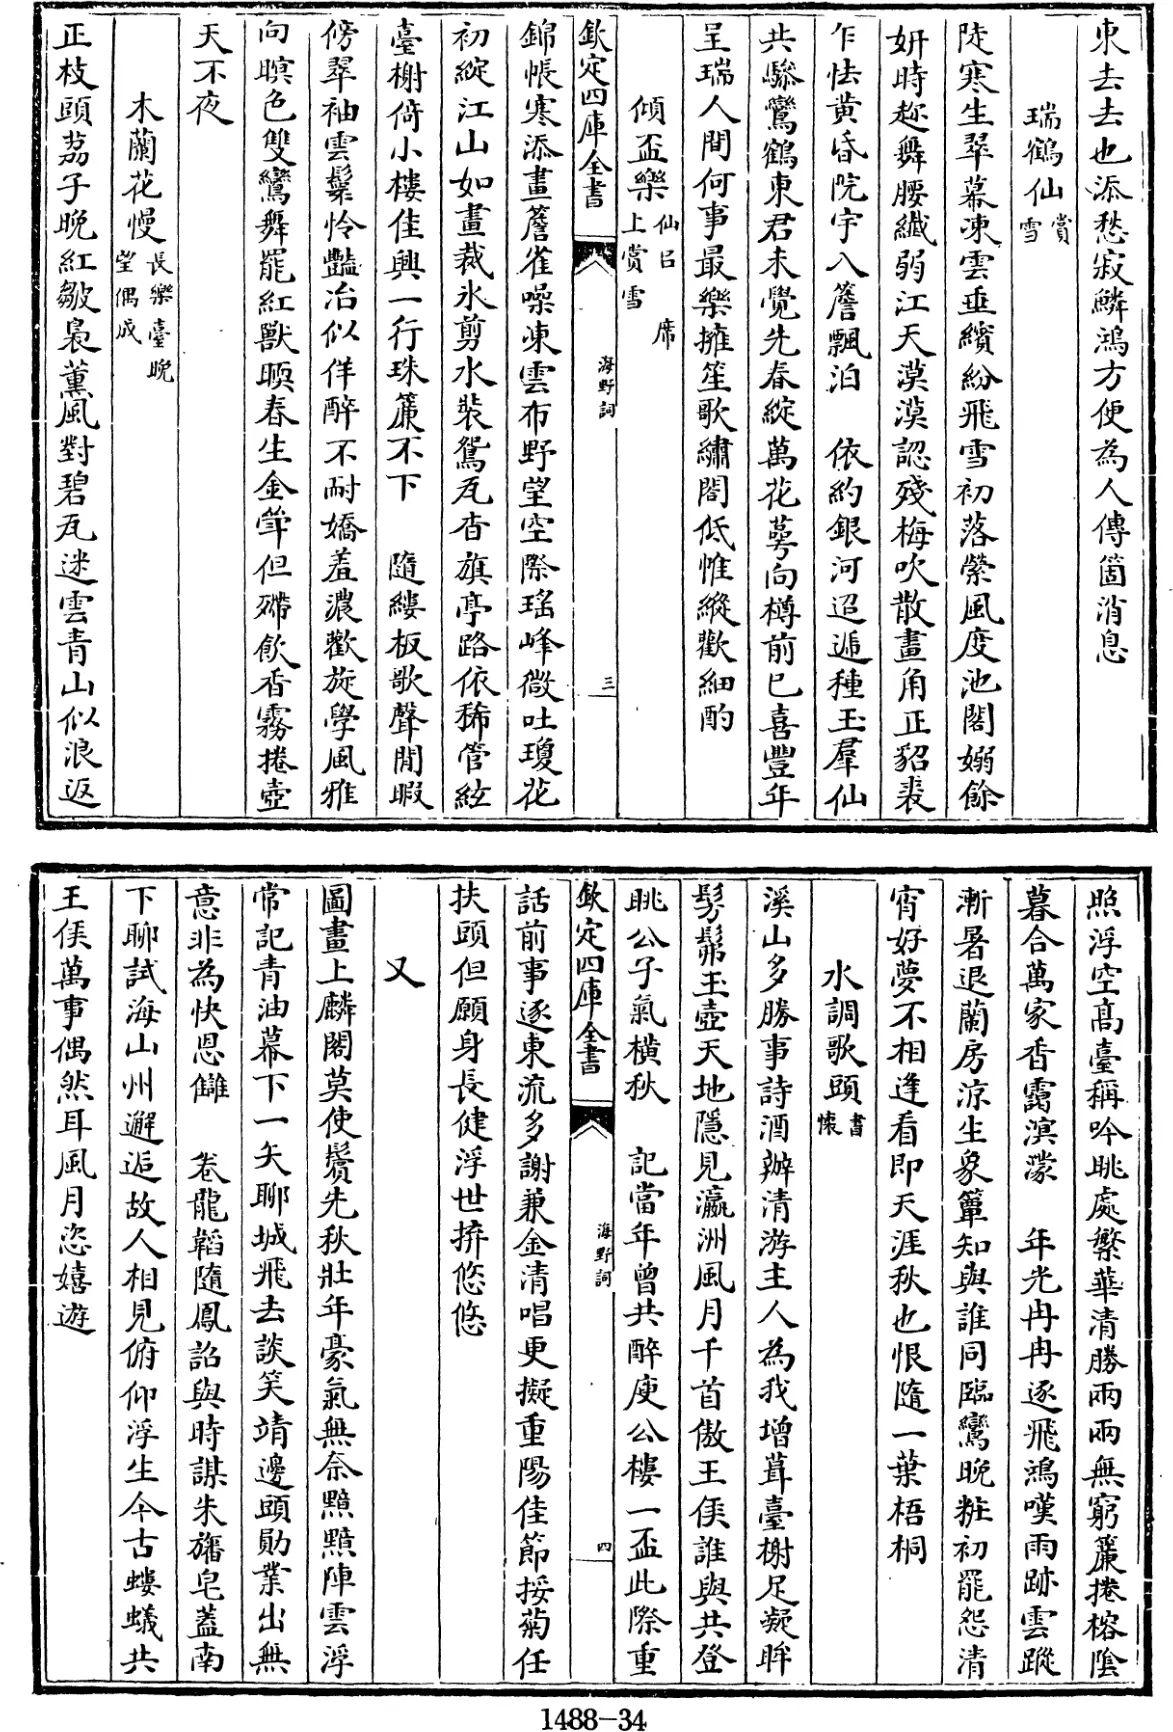 東去去也添愁寂鱗鴻方便為人傳箇消息
瑞鶴仙賞雪
陡寒生翠幕凍雲垂繽紛飛雪初落縈風度池閣嫋餘
妍時趁舞腰纖弱江天漠漠認殘梅吹散畫角正貂裘
乍怯黄昏院宇入簷飄泊　依約銀河迢遞種玉羣仙
共驂鸞鶴東君未覺先春綻萬花萼向樽前已喜豐年
呈瑞人間何事最樂擁笙歌繡閤低帷縱歡細酌
傾盃樂仙呂席上賞雪
欽定四庫全書　海野詞　三
錦帳寒添畫簷雀噪凍雲布野望空際瑶峰微吐瓊花
初綻江山如畫裁氷剪水裝鴛瓦杏旗亭路依稀管絃
臺榭倚小樓佳興一行珠簾不下　隨縷板歌聲閒暇
傍翠袖雲鬟怜豔冶似佯醉不耐嬌羞濃歡旋學風雅
向暝色雙鸞舞罷紅獸暖春生金斝但殢飲香霧捲壺
天不夜
木蘭花慢長樂臺晚望偶成
正枝頭荔子晚紅皺裊薰風對碧瓦迷雲青山似浪返
照浮空髙臺稱吟眺處繁華清勝兩兩無窮簾捲榕陰
暮合萬家香靄溟濛　年光冉冉逐飛鴻嘆雨跡雲蹤
漸暑退蘭房凉生象簟知與誰同臨鸞晚粧初罷怨清
宵好夢不相逢看即天涯秋也恨隨一葉梧桐
水調歌頭書懐
溪山多勝事詩酒辦清游主人為我增葺臺榭足凝眸
髣髴玉壺天地隱見瀛洲風月千首傲王侯誰與共登
眺公子氣横秋　記當年曾共醉庾公樓一盃此際重
欽定四庫全書　海野詞　四
話前事逐東流多謝兼金清唱更擬重陽佳節挼菊任
扶頭但願身長健浮世拚悠悠
又
圖畫上麟閣莫使鬢先秋壯年豪氣無奈黯黯陣雲浮
常記青油幕下一矢聊城飛去談笑靖邊頭勛業出無
意非為快恩讎　卷龍韜隨鳳詔與時謀朱旛皂蓋南
下聊試海山州邂逅故人相見俯仰浮生今古螻蟻共
王侯萬事偶然耳風月恣嬉遊
1488-34